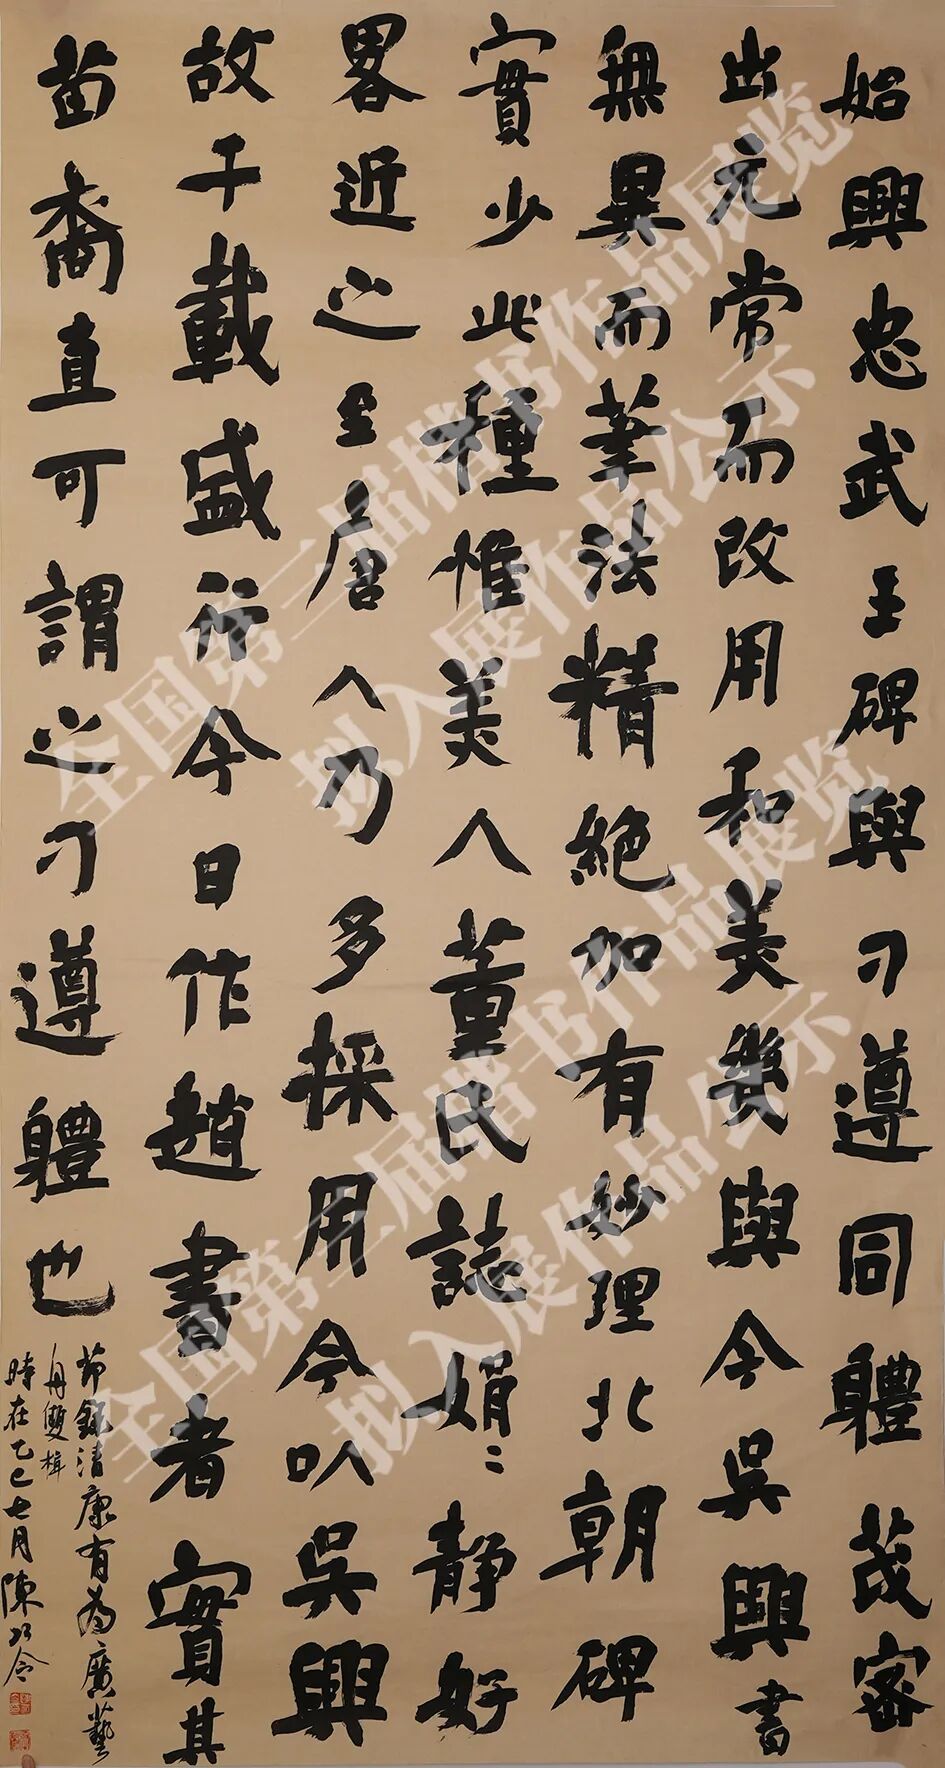 始興忠武王碑與刁遵同體茂密
出元常而改用和美幾與今吳興書
無異而筆法精絕加有妙理北朝碑
實少此種惟美人董氏誌娟〻靜好
畧近之至唐人乃多採用今叭吳興
故千載盛行今日作趙書者實其
苗裔直可謂之刁遵體也
節錄清康有為廣藝
舟雙楫
時在乙巳七月陳
全国第三届楷书作品展览
拟入展作品公示
全国第三届楷书作品展览
拟入展作品公示